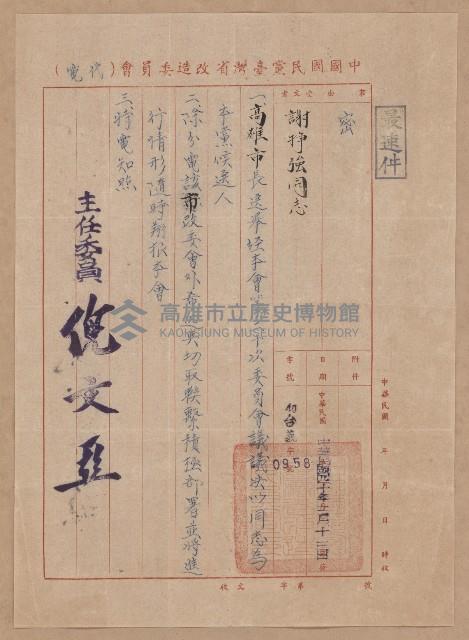 中國國民黨臺灣省改造委員會（代電）
最速件
密
事由受文者
謝掙強同志
附件
日期
中華民國
字號
0958
一、高雄市長選舉經本會第　次委員會議議決以同志為
本黨候選人
二、除分電該市改委會外希迅與切取聯繫積極部署並將進
行情形隨時翔報本會
三、特電知照
主任委員
倪文亞
中華民國　年　月　日　時收
號　字第　文收
高雄市立歷史博物館
KAOHSIUNG MUSEUM OF HISTORY